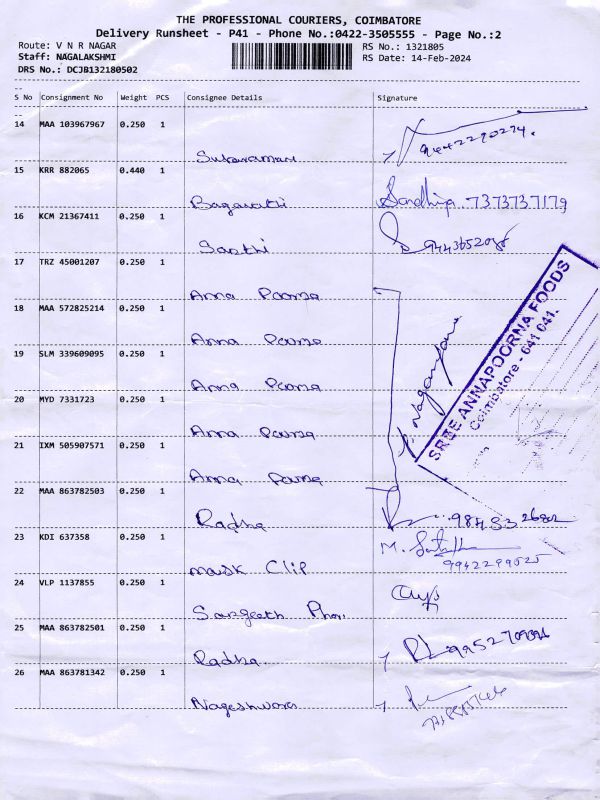 THE PROFESSIONAL COURIERS, COIMBATORE
Delivery Runsheet - P41 - Phone No.:0422-3505555 - Page No.:2
Route: V N R NAGAR
RS No.: 1321805
Staff: NAGALAKSHMI
RS Date: 14-Feb-2024
DRS No.: DCJB132180502
S No Consignment No Weight PCS Consignee Details Signature
14 MAA 103967967 0.250 1
15 KRR 882065 0.440 1
Bagavathi Sandhiya. 7373737179
16 KCM 21367411 0.250 1
Sakthi
17 TRZ 45001207 0.250 1
Anna Poorna
18 MAA 572825214 0.250 1
Anna Poorna
19 SLM 339609095 0.250 1
Anna Poorna
20 MYD 7331723 0.250 1
Anna Poorna
21 IXM 505907571 0.250 1
Anna Poorna
SREE ANNAPOORNA FOODS
Coimbatore - 641 041.
22 MAA 863782503 0.250 1
Radha
23 KDI 637358 0.250 1
mask Clip 9942299525
24 VLP 1137855 0.250 1
Sangeeth
25 MAA 863782501 0.250 1
Radha
26 MAA 863781342 0.250 1
Nageshwara